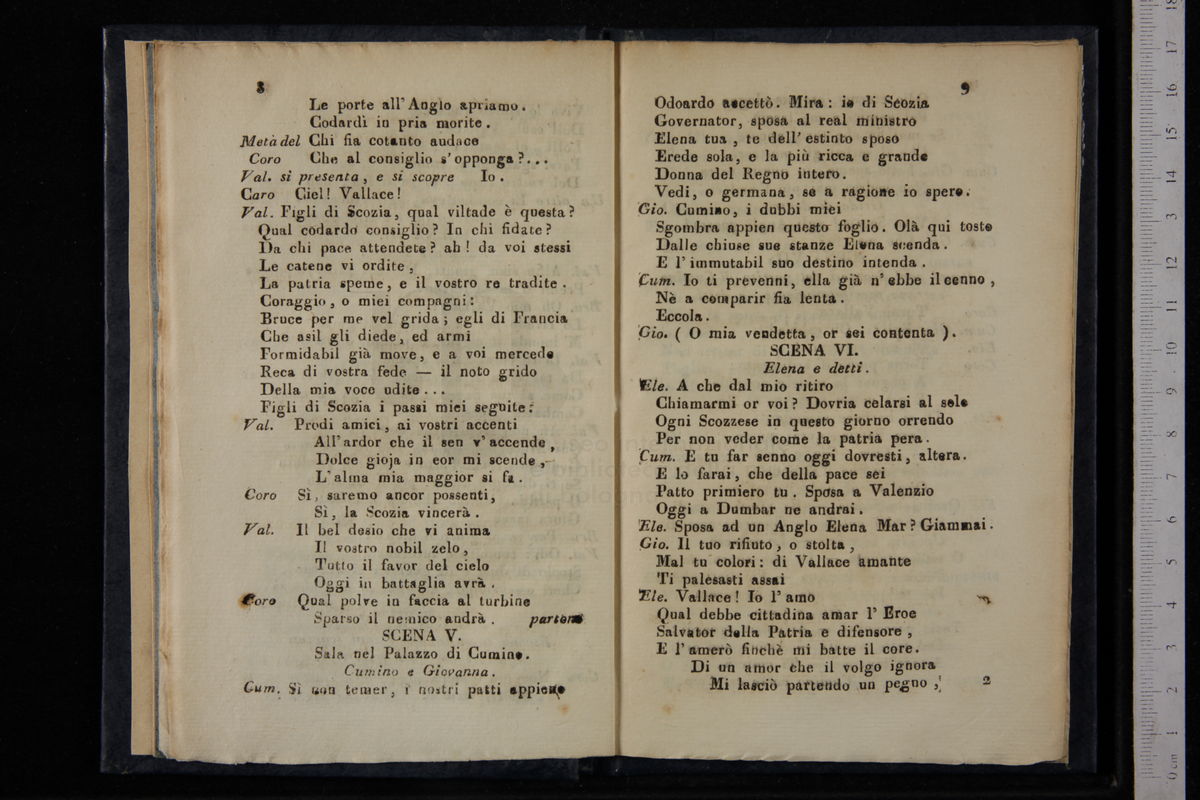 8
Le porte all' Anglo apriamo.
Codardi in pria morite.
Metà del Chi fia cotanto audace
Coro Che al consiglio s' opponga?...
Val. si presenta, e si scopre Io.
Caro Ciel! Vallace!
Val. Figli di Scozia, qual viltade è questa?
Qual codardo consiglio? In chi fidate?
Da chi pace attendete? ah! da voi stessi
Le catene vi ordite,
La patria speme, e il vostro re tradite.
Coraggio, o miei compagni:
Bruce per me vel grida; egli di Francia
Che asil gli diede, ed armi
Formidabil già move, e a voi mercede
Reca di vostra fede — il noto grido
Della mia voce udite...
Figli di Scozia i passi miei seguite:
Val. Prodi amici, ai vostri accenti
All' ardor che il sen v' accende,
Dolce gioja in cor mi scende,
L' alma mia maggior si fa.
Coro Sì, saremo ancor possenti,
Sì, la Scozia vincerà.
Val. Il bel desio che vi anima
Il vostro nobil zelo,
Tutto il favor del cielo
Oggi in battaglia avrà.
Coro Qual polve in faccia al turbine
Sparso il nemico andrà. partono
SCENA V.
Sala nel Palazzo di Cumino.
Cumino e Giovanna.
Cum. Sì non temer, i nostri patti appieno
9
Odoardo accettò. Mira: io di Scozia
Governator, sposa al real ministro
Elena tua, te dell' estinto sposo
Erede sola, e la più ricca e grande
Donna del Regno intero.
Vedi, o germana, se a ragione io spero.
Gio. Cumino, i dubbi miei
Sgombra appien questo foglio. Olà qui tosto
Dalle chiuse sue stanze Elena scenda.
E l' immutabil suo destino intenda.
Cum. Io ti prevenni, ella già n' ebbe il cenno,
Nè a comparir fia lenta.
Eccola.
Gio. ( O mia vendetta, or sei contenta ).
SCENA VI.
Elena e detti.
Ele. A che dal mio ritiro
Chiamarmi or voi? Dovria celarsi al sole
Ogni Scozzese in questo giorno orrendo
Per non veder come la patria pera.
Cum. E tu far senno oggi dovresti, altera.
E lo farai, che della pace sei
Patto primiero tu. Sposa a Valenzio
Oggi a Dumbar ne andrai.
Ele. Sposa ad un Anglo Elena Mar? Giammai.
Gio. Il tuo rifiuto, o stolta,
Mal tu colori: di Vallace amante
Ti palesasti assai
Ele. Vallace! Io l' amo
Qual debbe cittadina amar l' Eroe
Salvator della Patria e difensore,
E l' amerò finchè mi batte il core.
Di un amor che il volgo ignora
Mi lasciò partendo un pegno, 2